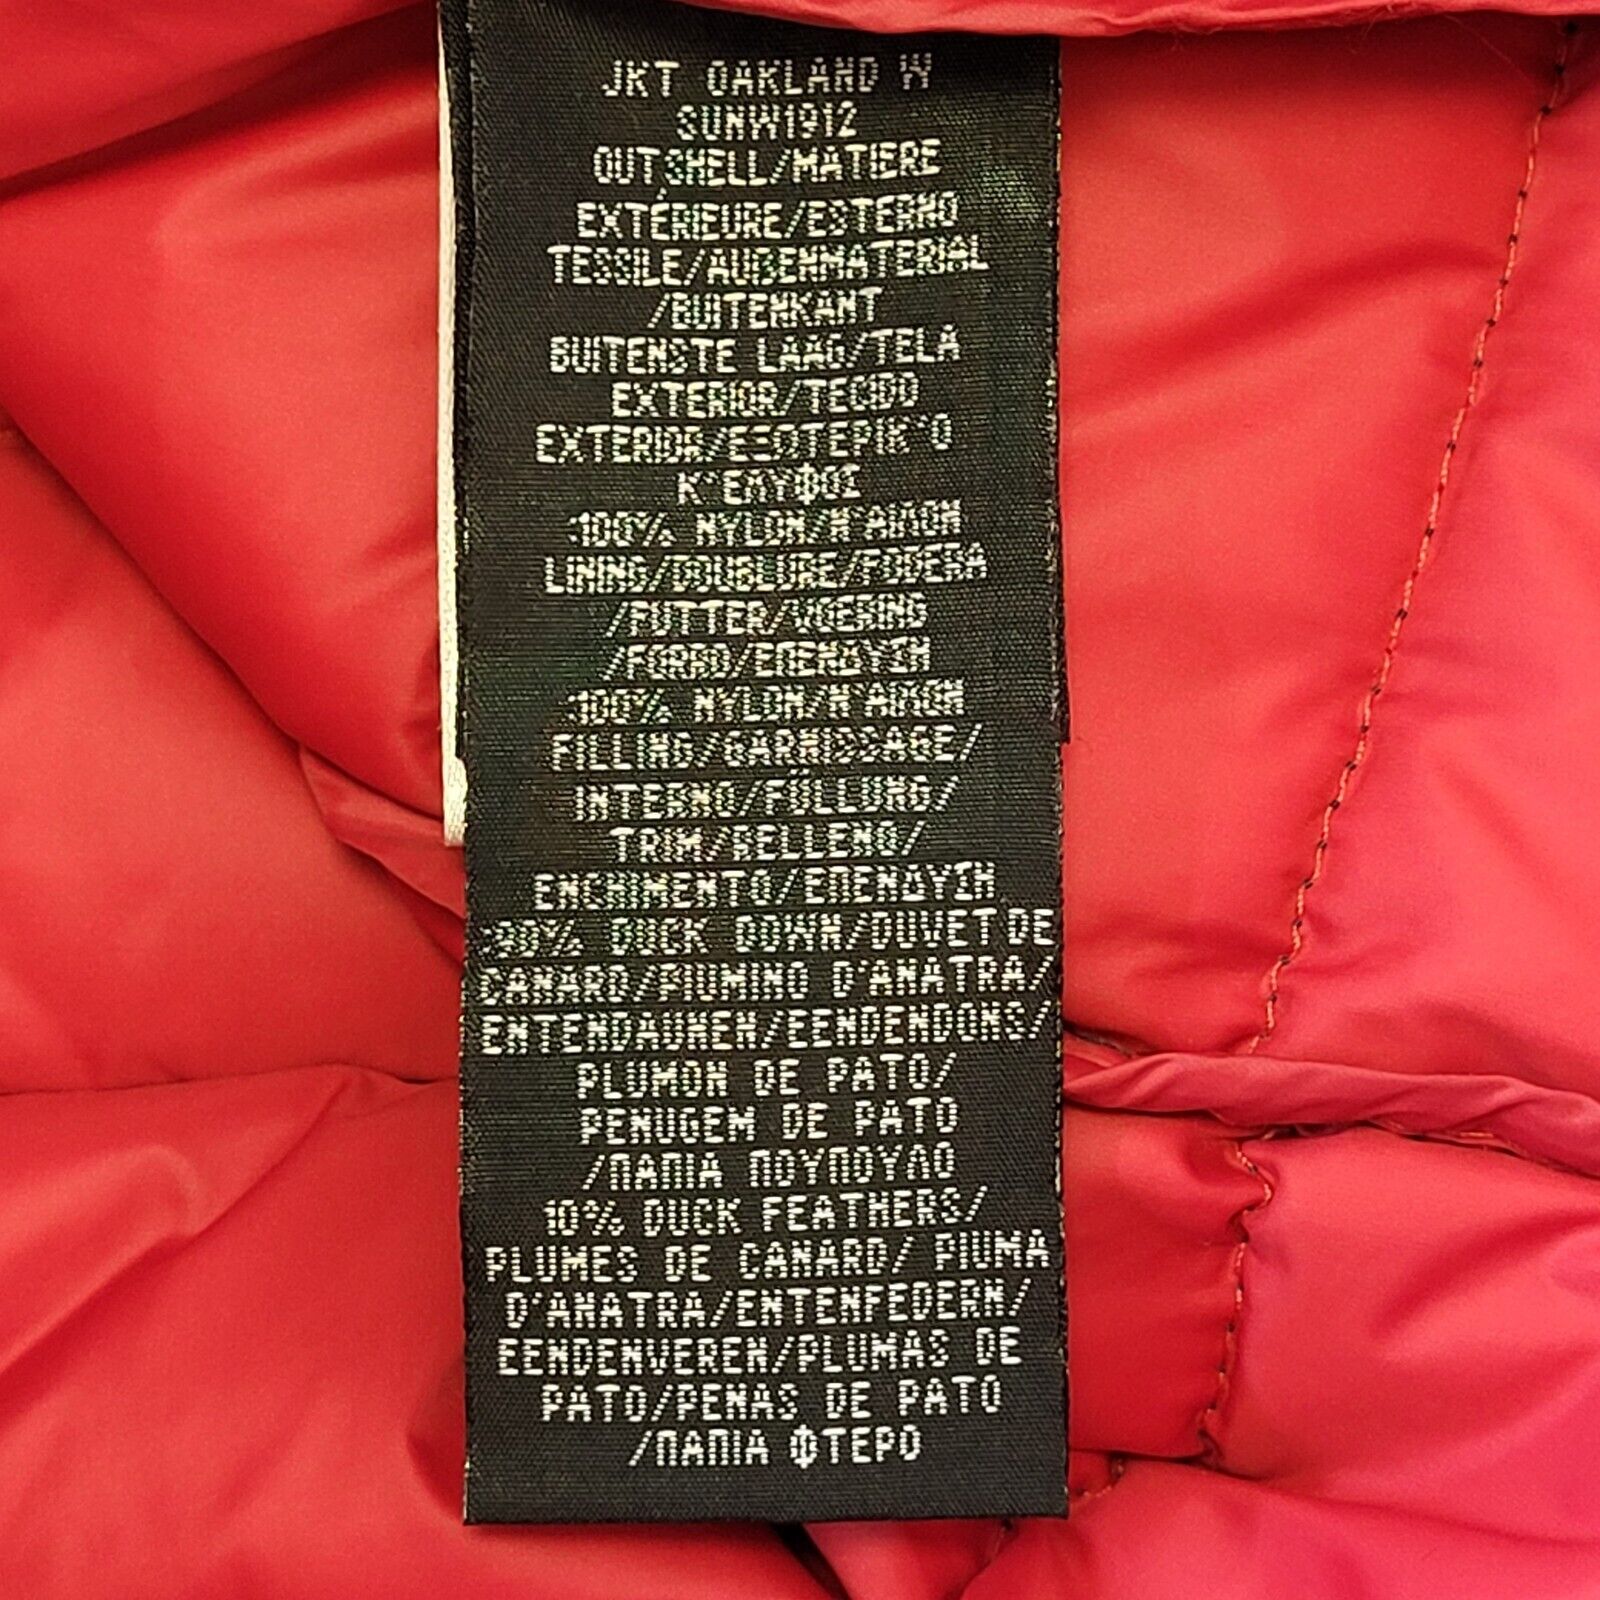 JKT OAKLAND W
SUNW1912
OUTSHELL/MATIERE
EXTÉRIEURE/ESTERNO
TESSILE/AUßENMATERIAL
/BUITENKANT
BUITENSTE LAAG/TELA
EXTERIOR/TECIDO
EXTERIOR/ΕΞΩΤΕΡΙΚ´Ο
Κ´ΕΛΥΦΟΣ
:100% NYLON/Ν´ΑΙΛΟΝ
LINING/DOUBLURE/FODERA
/FUTTER/VOERING
/FORRO/ΕΠΕΝΔΥΣΗ
:100% NYLON/Ν´ΑΙΛΟΝ
FILLING/GARNISSAGE/
INTERNO/FÜLLUNG/
TRIM/RELLENO/
ENCHIMENTO/ΕΠΕΝΔΥΣΗ
:90% DUCK DOWN/DUVET DE
CANARD/PIUMINO D'ANATRA/
ENTENDAUNEN/EENDENDONS/
PLUMON DE PATO/
PENUGEM DE PATO
/ΠΑΠΙΑ ΠΟΥΠΟΥΛΟ
10% DUCK FEATHERS/
PLUMES DE CANARD/ PIUMA
D'ANATRA/ENTENFEDERN/
EENDENVEREN/PLUMAS DE
PATO/PENAS DE PATO
/ΠΑΠΙΑ ΦΤΕΡΟ